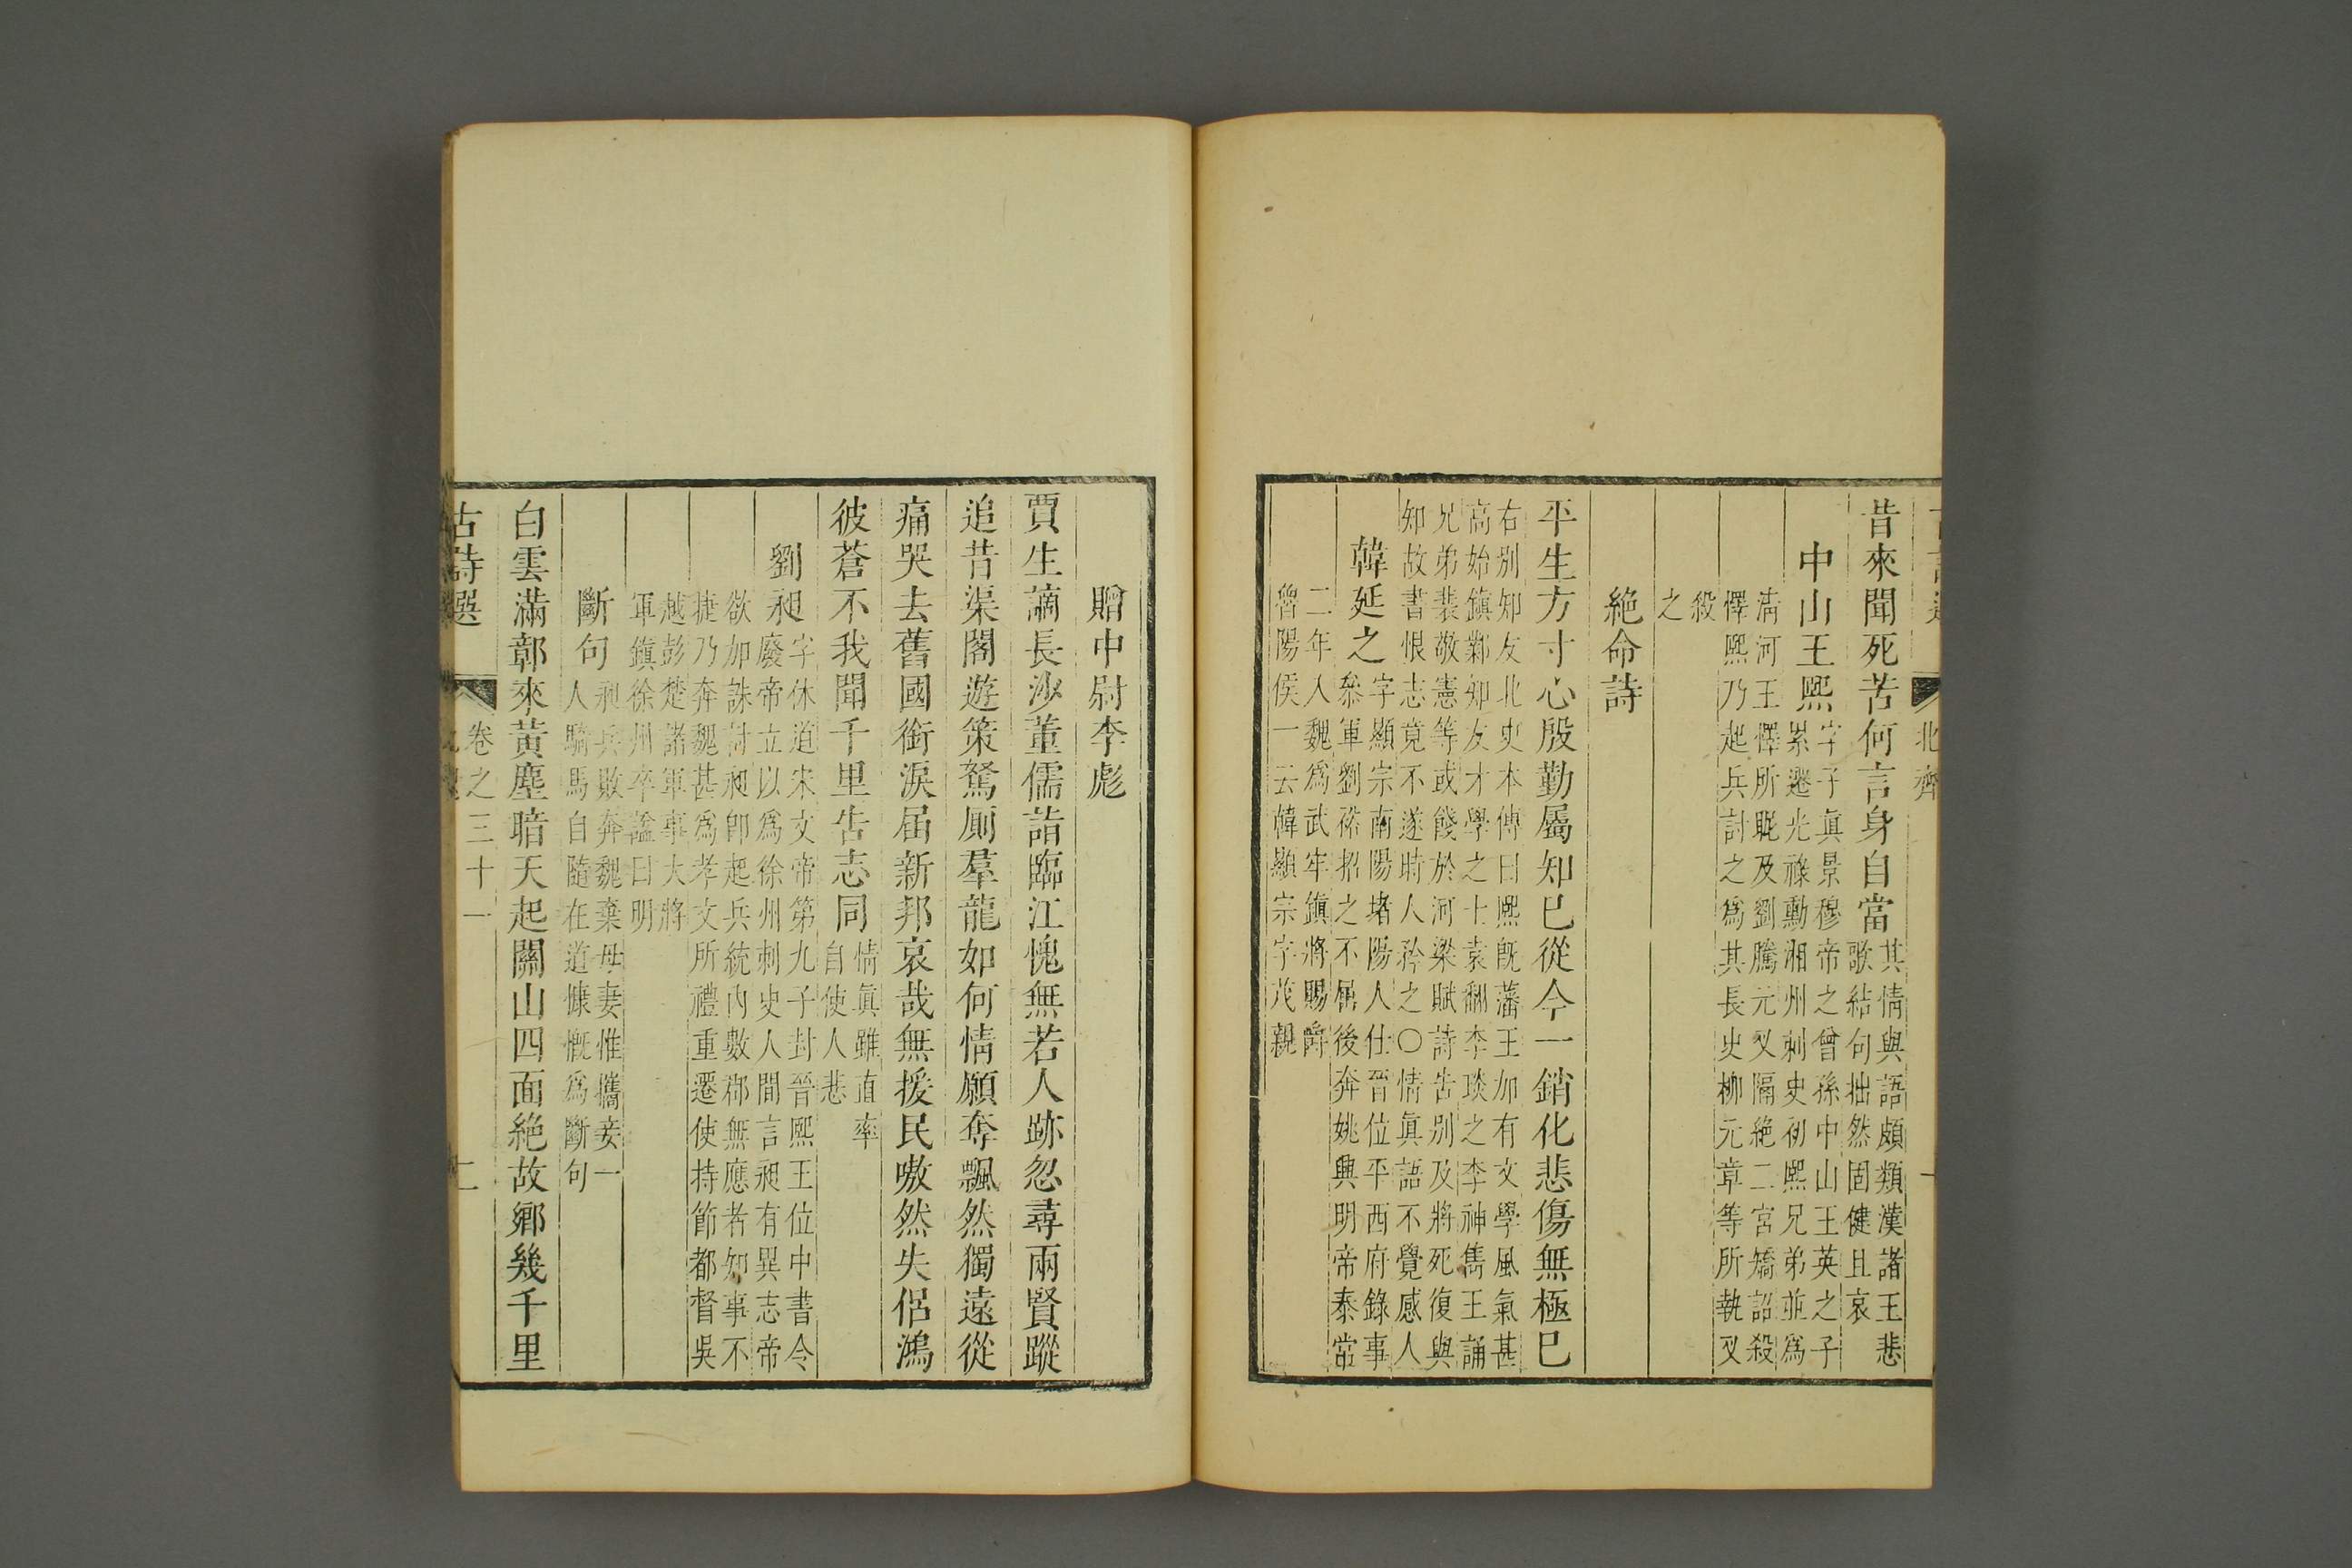 北齊
昔來聞死苦何言身自當
其情與語頗類漢諸王悲
歌結句拙然固健且哀
中山王熙
字子眞景穆帝之曾孫中山王英之子
累遷光祿勳湘州刺史初熙兄弟並爲
淸河王懌所眤及劉騰元叉隔絶二宮矯詔殺
懌熙乃起兵討之爲其長史柳元章等所執叉
殺
之
絶命詩
平生方寸心殷勤屬知巳從今一銷化悲傷無極巳
右别知友北史本傳曰熙旣藩王加有文學風氣甚
高始鎮鄴知友才學之士袁翻李琰之李神儁王誦
兄弟裴敬憲等或餞於河梁賦詩告别及將死復與
知故書恨志竟不遂時人矜之○情眞語不覺感人
韓延之
字顯宗南陽堵陽人仕晉位平西府錄事
叅軍劉裕招之不屈後奔姚興明帝泰常
二年入魏爲武牢鎮將賜爵
魯陽侯一云韓顯宗字茂親
贈中尉李彪
賈生謫長沙董儒詣臨江愧無若人跡忽尋兩賢蹤
追昔渠閣遊策駑厠羣龍如何情願奪飄然獨遠從
痛哭去舊國銜淚届新邦哀哉無援民嗷然失侶鴻
彼蒼不我聞千里告志同
情眞雖直率
自使人悲
劉昶
字休道宋文帝第九子封晉熙王位中書令
廢帝立以爲徐州刺史人間言昶有異志帝
欲加誅討昶卽起兵統内數郡無應者知事不
捷乃奔魏甚爲孝文所禮重遷使持節都督吳
越彭楚諸軍事大將
軍鎮徐州卒謚曰明
斷句
昶兵敗奔魏棄母妻惟攜妾一
人騎馬自隨在道慷慨爲斷句
白雲滿鄣來黃塵暗天起關山四面絶故鄉幾千里
古詩選
卷之三十一
二